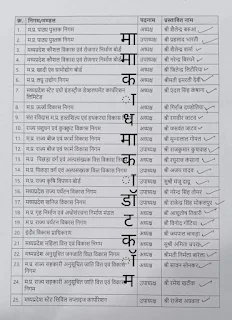 क्र. निगम/मण्डल पदनाम प्रस्तावित नाम
1 म.प्र. पाठ्य पुस्तक निगम अध्यक्ष श्री शैलेन्द्र बरूआ
2 म.प्र. पाठ्य पुस्तक निगम उपाध्यक्ष श्री प्रहलाद भारती
3 मध्यप्रदेश कौशल विकास एवं रोजगार निर्माण बोर्ड अध्यक्ष श्री शैलेन्द्र शर्मा
4 मध्यप्रदेश कौशल विकास एवं रोजगार निर्माण बोर्ड उपाध्यक्ष श्री नरेन्द्र बिरथरे
5 म.प्र. खादी एवं ग्रामोद्योग बोर्ड अध्यक्ष श्री जितेन्द्र लिटोरिया
6 म.प्र. लघु उद्योग निगम अध्यक्ष श्रीमती इमरती देवी
7 मध्यप्रदेश स्टेट एग्रो इंडस्ट्रीज डेव्हलपमेंट कार्पोरेशन
लिमिटेड अध्यक्ष श्री एदल सिंह कंषाना
8 म.प्र. ऊर्जा विकास निगम अध्यक्ष श्री गिर्राज दण्डोतिया
9 संत रविदास म.प्र. हस्तशिल्प एवं हथकरघा विकास निगम अध्यक्ष श्री रणवीर जाटव
10 राज्य पशुधन एवं कुक्कुट विकास निगम अध्यक्ष श्री जसवंत जाटव
11 म.प्र. राज्य बीज एवं फार्म विकास निगम अध्यक्ष श्री मुन्नालाल गोयल
12 म.प्र. राज्य बीज एवं फार्म विकास निगम उपाध्यक्ष श्री राजकुमार कुशवाह
13 म.प्र. पिछड़ा वर्ग एवं अल्पसंख्यक वित्त विकास निगम अध्यक्ष श्री रघुराज कंषाना
14 म.प्र. पिछड़ा वर्ग एवं अल्पसंख्यक वित्त विकास निगम उपाध्यक्ष
15 म.प्र. राज्य कृषि विपणन बोर्ड उपाध्यक्ष
16 मध्यप्रदेश पर्यटन विकास निगम
17 मध्यप्रदेश खनिज विकास निगम उपाध्यक्ष
18 म.प्र. गृह निर्माण एवं अधोसंरचना विकास मंडल अध्यक्ष श्री आशुतोष तिवारी
19 म.प्र. राज्य पर्यटन विकास निगम अध्यक्ष श्री विनोद गोटिया
20 इंदौर विकास प्राधिकरण अध्यक्ष श्री जयपाल चावड़ा
21 मध्यप्रदेश महिला वित्त एवं विकास निगम अध्यक्ष
22 मध्यप्रदेश आदिवासी वित्त एवं विकास निगम अध्यक्ष श्रीमती निर्मला बारेला
23 म.प्र. राज्य सहकारी अनुसूचित जाति वित्त एवं विकास
निगम अध्यक्ष श्री सावन सोनकर
24 म.प्र. राज्य सहकारी अनुसूचित जाति वित्त एवं विकास
निगम उपाध्यक्ष श्री रमेश खटीक
25 मध्यप्रदेश स्टेट सिविल सप्लाइज कार्पोरेशन उपाध्यक्ष श्री राजेश अग्रवाल
मामाकाधमाका डॉट कॉम